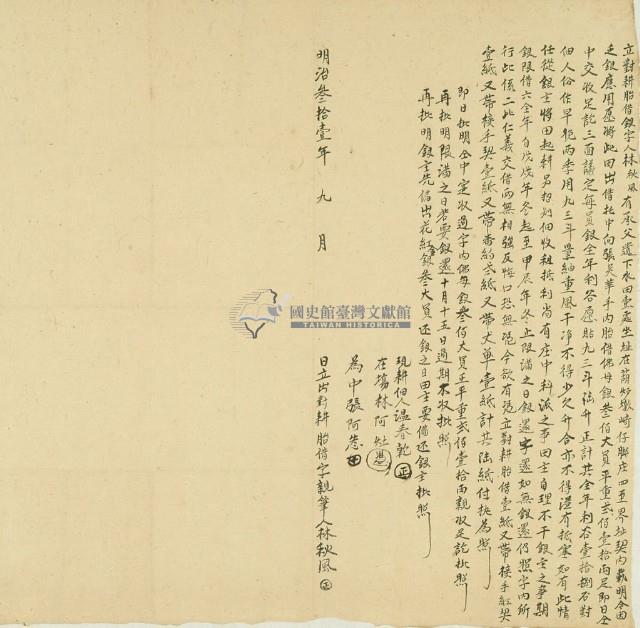 立對耕胎借銀字人林秋風有承父遺下水田壹處坐址在葫蘆墩崎仔腳庄四至界址契內載明今因
乏銀應用愿將此田出借托中向張吳華手內胎借佛母銀叁佰大員平重貳佰壹拾兩足即日仝
中交收足訖三面議定每員銀全年利谷愿貼九三斗法升正計共全年利谷壹拾捌石對
佃人份作早晚兩季用九三斗量紬重風干淨不得少欠升合亦不得湿有抵塞如有此情
任從銀主將田起耕另招別佃收租抵利尚有庄中科派之事田主自理不干銀主之事期
銀限借六全年自戊戌年冬起至甲辰年冬止限滿之日銀還字還如無銀還仍照字內所
行此係二比仁義交借兩無相強反悔口恐無憑今欲有憑立對耕胎借壹紙又帶接手紅契
壹紙又帶接手契壹紙又帶番約弍紙又帶丈單壹紙計共陆紙付执為照
即日批明仝中寔收過字內佛母銀叁佰大員正平重弍佰壹拾兩親收足訖批照
再批明限滿之日若要銀還十月十五日過期不收批照
再批明銀主先備出花紅銀叁大員还銀之日田主要備还銀主批照
現耕佃人溫春乾
在塲林阿灶
為中張阿慿
明治叁拾壹年 九 月 日立出對耕胎借字親筆人林秋風
國史館臺灣文獻館
TAIWAN HISTORICA